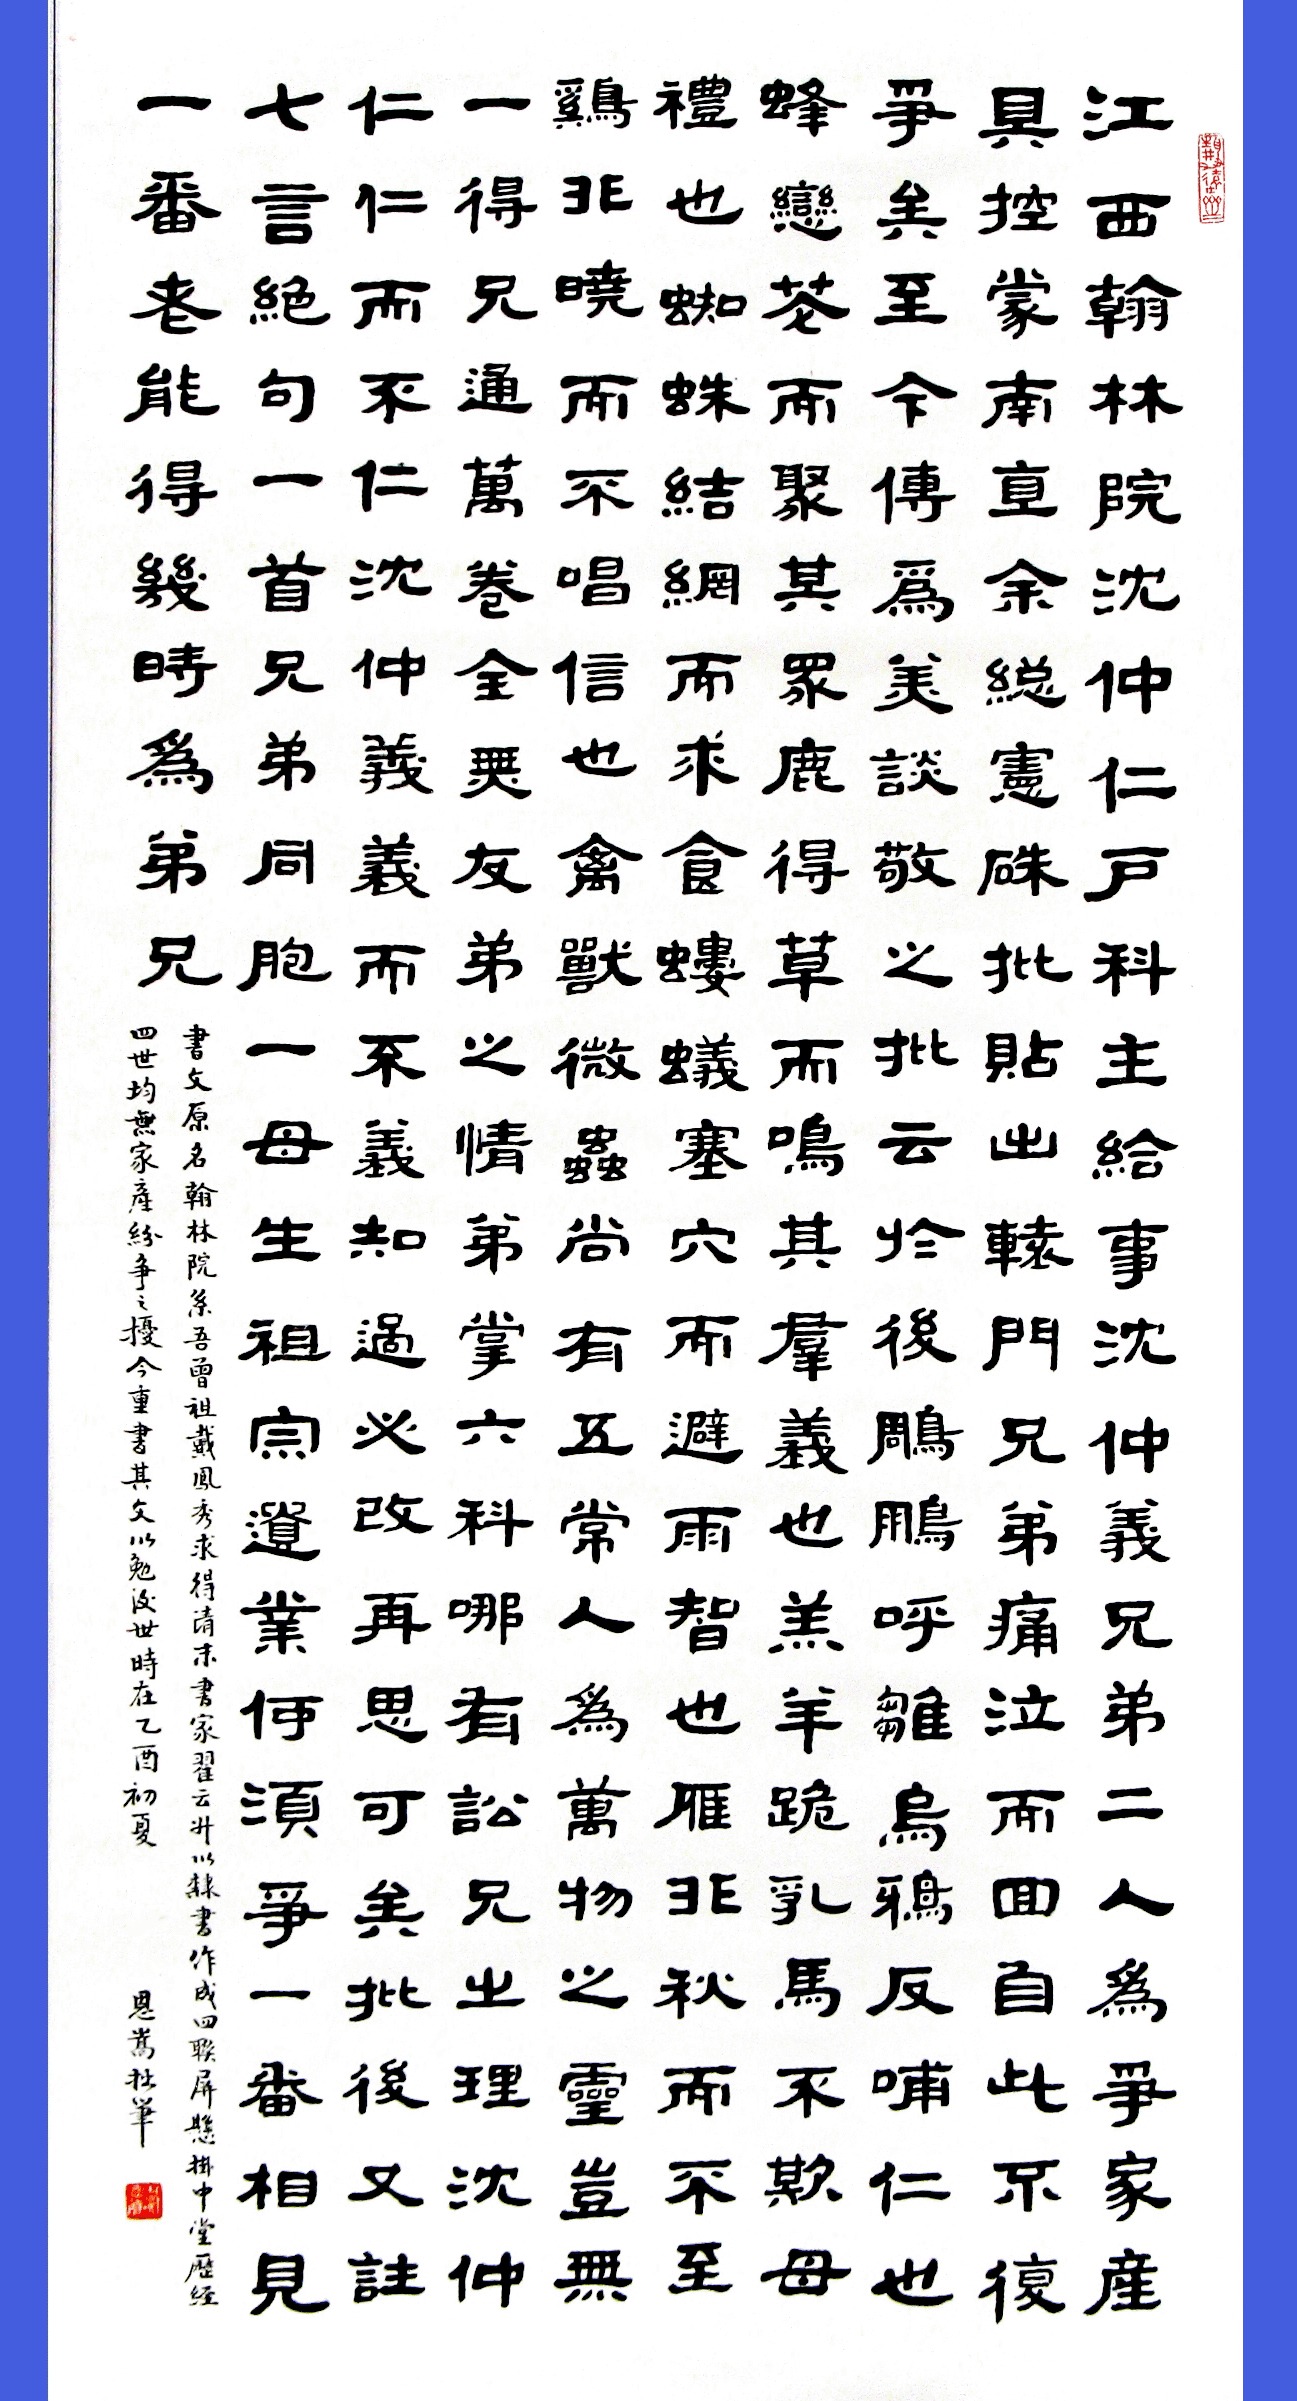 江西翰林院沈仲仁戸科主給事沈仲義兄弟二人爲爭家産
具控蒙南直余總憲硃批貼出轅門兄弟痛泣而回自此不復
爭矣至今傳爲美談敬之批云於後鵰鵬呼雛烏鴉反哺仁也
蜂戀花而聚其眾鹿得草而鳴其羣義也羔羊跪乳馬不欺母
禮也蜘蛛結網而求食螻蟻塞穴而避雨智也雁非秋而不至
鷄非曉而不唱信也禽獸微蟲尚有五常人爲萬物之靈豈無
一得兄通萬卷全無友弟之情弟掌六科哪有訟兄之理沈仲
仁仁而不仁沈仲義義而不義知過必改再思可矣批後又註
七言絕句一首兄弟同胞一母生祖宗遺業何須爭一番相見
一番老能得幾時爲弟兄
書文原名翰林院系吾曾祖戴鳳秀求得清末書家翟云升以隸書作成四聯屏懸掛中堂歷經
四世均無家產紛争之擾今重書其文以勉後世時在乙酉初夏
恩嵩拙筆